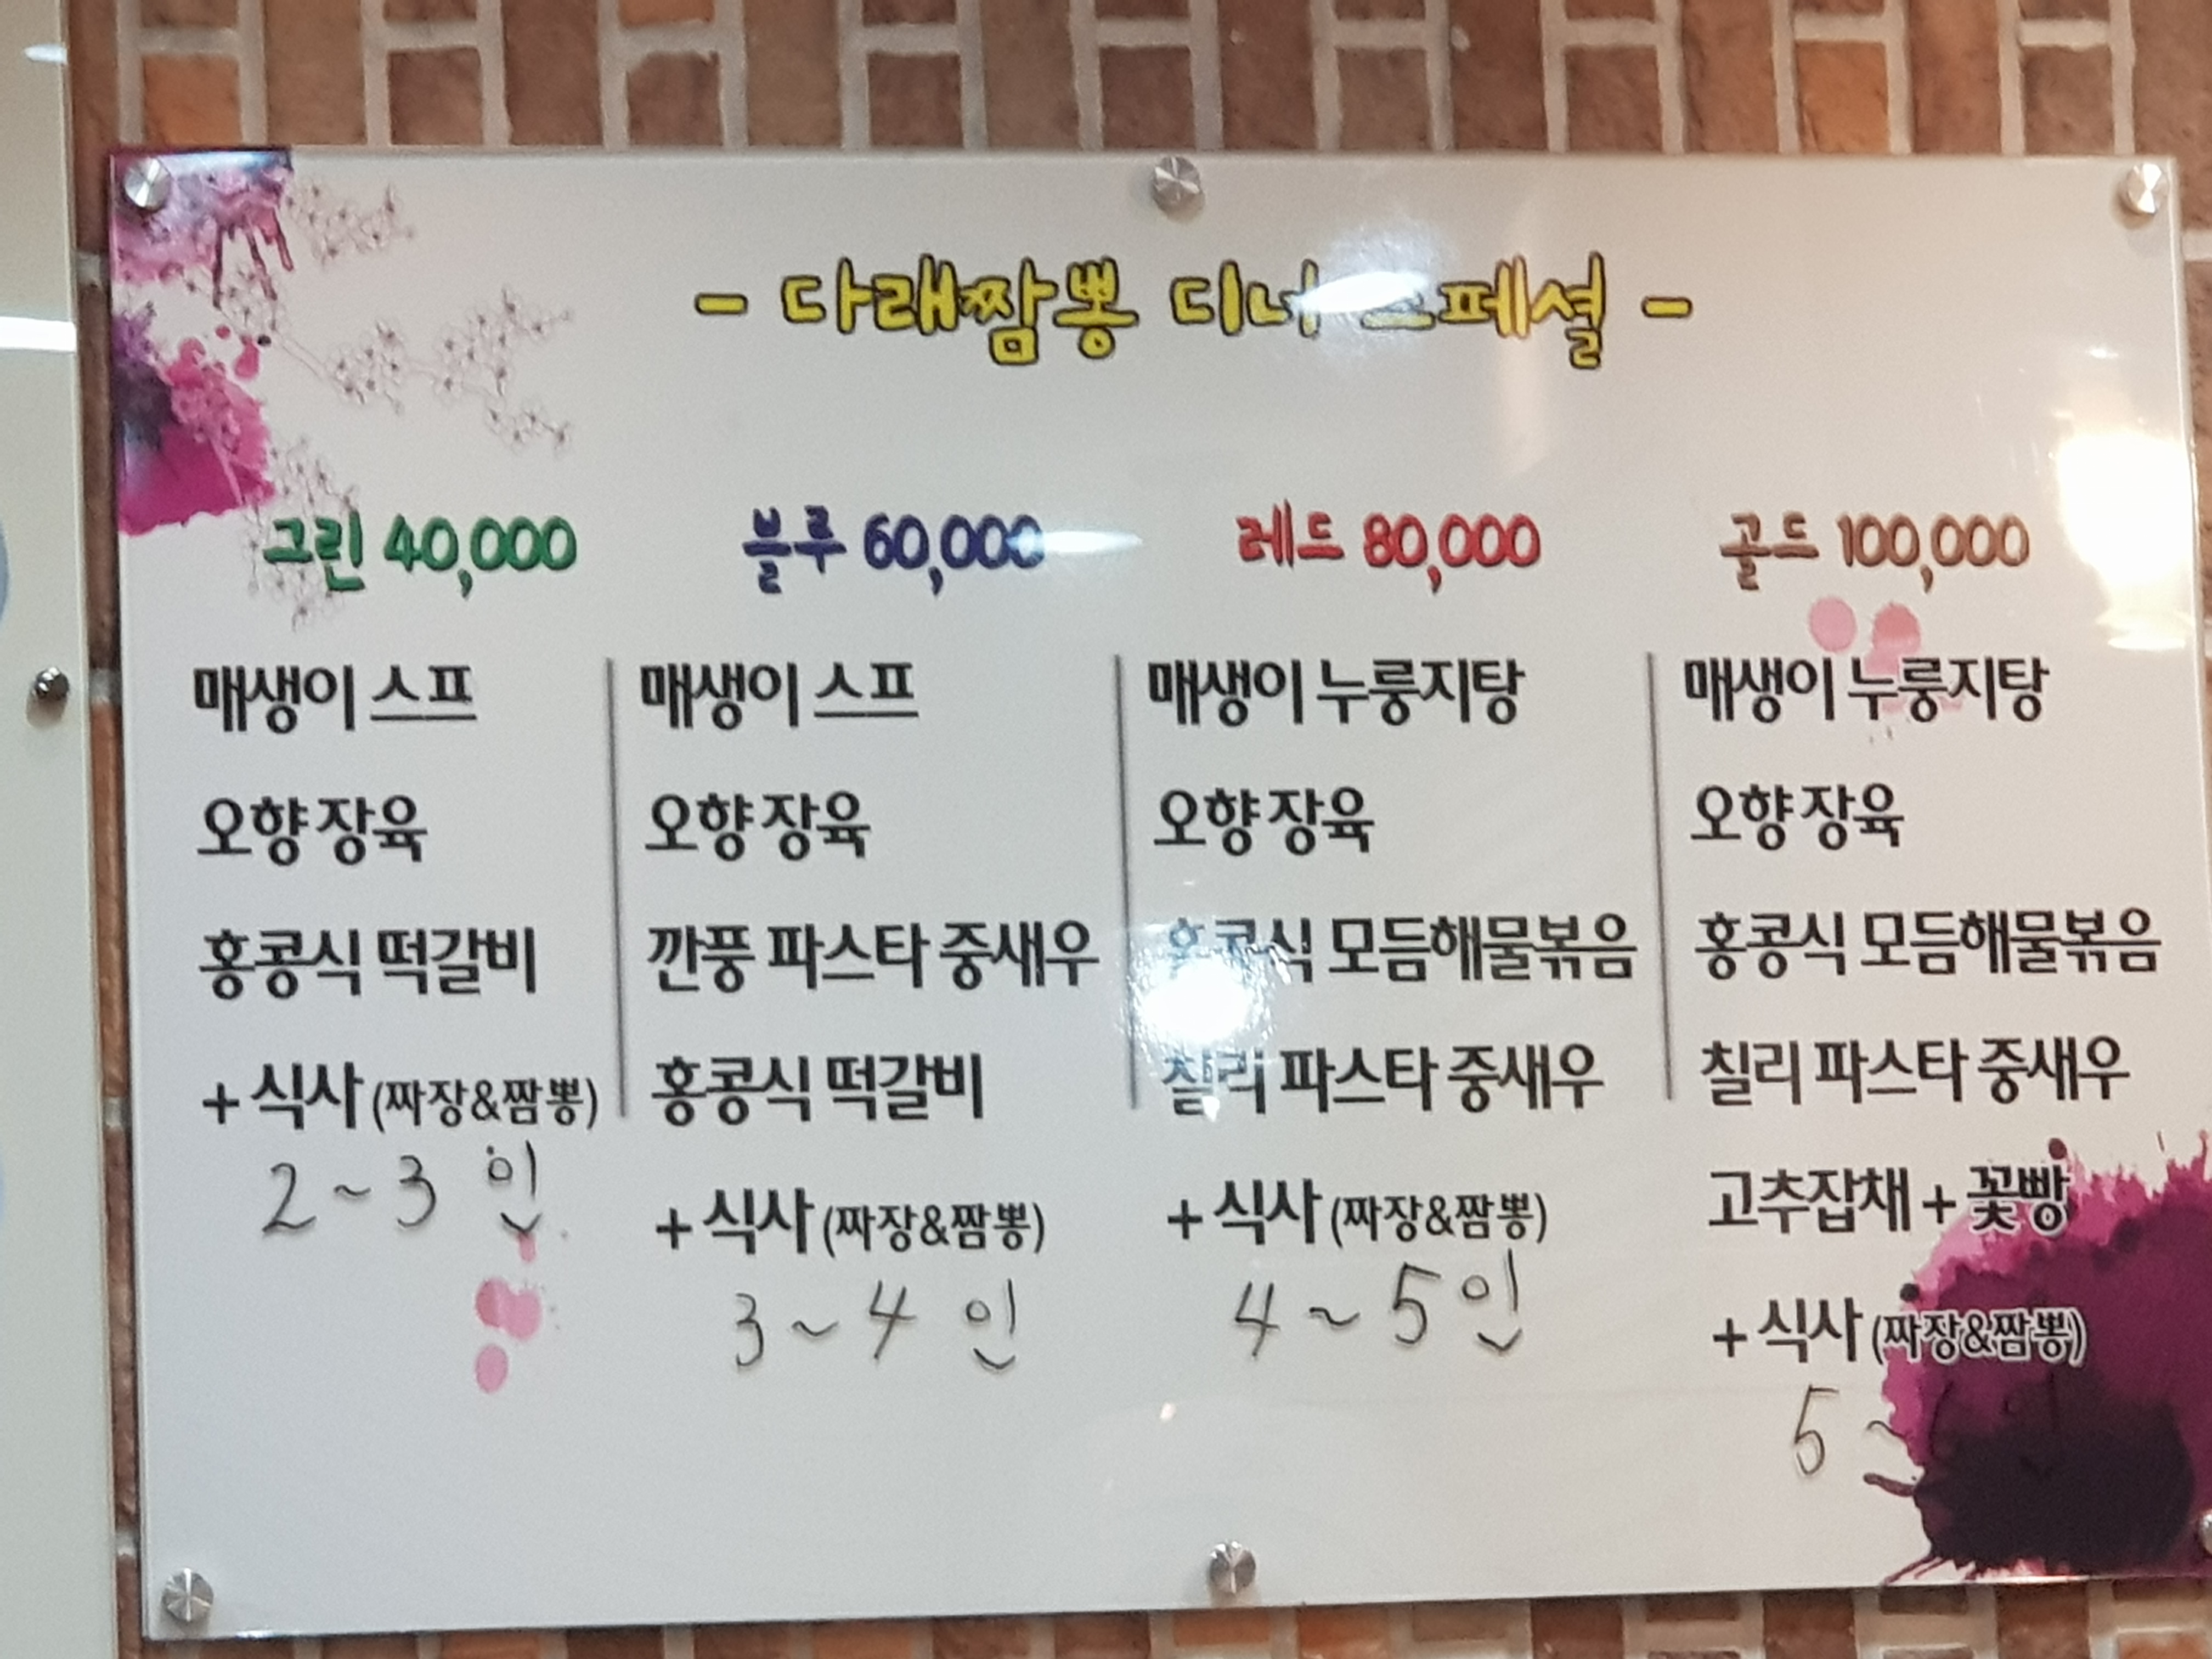 - 다래짬뽕 디너 스페셜 -
그린 40,000
매생이 스프
오향장육
홍콩식 떡갈비
+ 식사 (짜장&짬뽕)
2~3 인
블루 60,000
매생이 스프
오향장육
깐풍 파스타 중새우
홍콩식 떡갈비
+ 식사 (짜장&짬뽕)
3~4 인
레드 80,000
매생이 누룽지탕
오향장육
홍콩식 모듬해물볶음
칠리 파스타 중새우
+ 식사 (짜장&짬뽕)
4~5인
골드 100,000
매생이 누룽지탕
오향장육
홍콩식 모듬해물볶음
칠리 파스타 중새우
고추잡채 + 꽃빵
+ 식사 (짜장&짬뽕)
5~